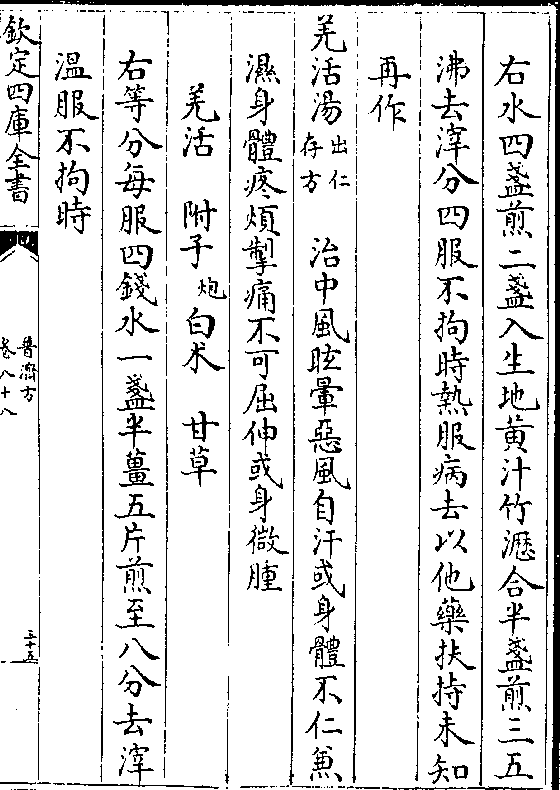 右水四盞煎二盞入生地黄汁竹瀝合半盞煎三五
沸去滓分四服不拘時熱服病去以他藥扶持未知
再作
羌活湯出仁存方 治中風眩暈惡風自汗或身體不仁兼
濕身體疼煩掣痛不可屈伸或身微腫
羌活 附子炮 白术 甘草
右等分每服四錢水一盞半薑五片煎至八分去滓
溫服不拘時
欽定四庫全書
普濟方
卷八十八
三十五